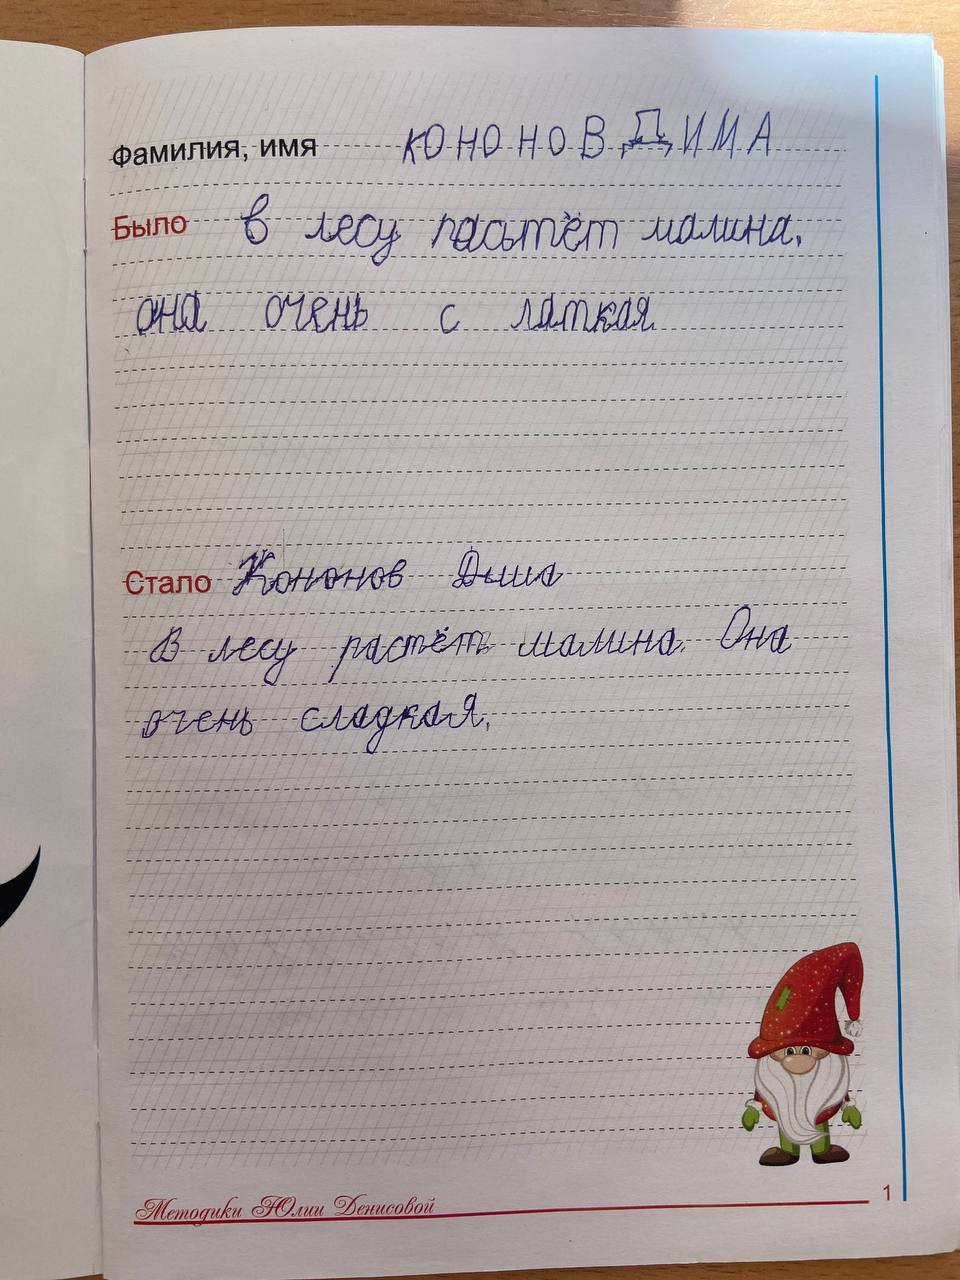 Фамилия, имя КОНОНОВ ДИМА
Было в лесу расьтёт малина.
она очень с латкая
Стало Кононов Дима
В лесу растёт малина. Она
очень сладкая.
Методики Юлии Денисовой
1